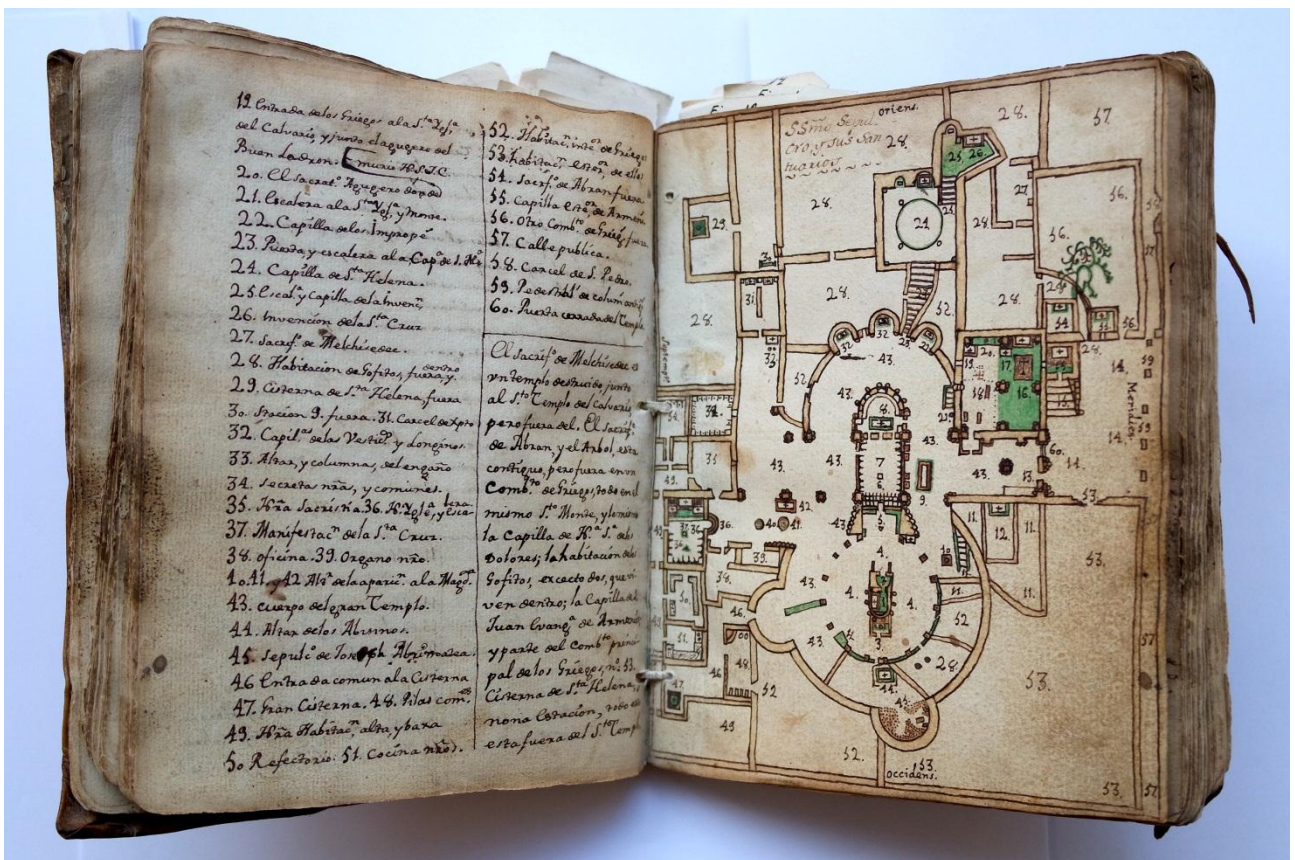 19 Entrada de los Griegos a la S.ta Yg.a
del Calvario, y junto el agugero del
Buen Ladron.
murio N.S.J.C.
20. El Sacrat.o Agugero donde
21. Escalera a la S.ta Ygl.a y Monte.
22. Capilla de los Improp.s
23. Puerta, y escalera a la Cap.a de S. Hel.a
24. Capilla de S.ta Helena.
25. Escal.a y Capilla de la Invenc.n
26. Invencion de la S.ta Cruz
27. Sacrif.o de Melchisedec.
28. Habitacion de Gofitos, fuera, y dentro
29. Cisterna de S.ta Helena, fuera
30. Stacion 9. fuera. 31. Carcel de Xpto
32. Capil.as de las Vestid.s y Longinos.
33. Altar, y columna, del engaño
34. Secreta nr̃a, y comunes.
35. Nr̃a Sacristia. 36. N. Ygl.a, y Esca-
lera
37. Manifestac.n de la S.ta Cruz.
38. oficina. 39. Organo nr̃o.
40. 41. y 42 Alt.s de la aparic.n a la Magd.a
43. cuerpo del gran Templo.
44. Altar de los Abisinos.
45. Sepulc.o de Joseph Abarimatea.
46 Entrada comun a la Cisterna
47. Gran Cisterna. 48. Pilas com.es
49. Nr̃a Habitac.n alta, y baxa
50 Refectorio. 51. Cocina nr̃os.
52. Habitac.n inte.or de Griegos
53. habitac.n este.or, de ellos
54. Sacrif.o de Abran fuera
55. Capilla este.or de Armen.s
56. Otro Comb.to de Grieg.s fuera
57. Calle publica.
58. Carcel de S. Pedro.
59. Pedestales de colum. antig.
60. Puerta cerrada del Templo
El Sacrif.o de Melchisedec es
vn templo destruido junto
al S.to Templo del Calvario
pero fuera del. El Sacrif.o
de Abran, y el Arbol, esta
contiguo, pero fuera en vn
Comb.to de Griegos, todo en el
mismo S.to Monte, y lo mismo
la Capilla de N.a S.a de los
Dolores; la habitacion de los
Gofitos, excecto dos, que vi
ven dentro; la Capilla de S.
Juan Evang.a de Armenios,
y parte del Comb.to princi
pal de los Griegos, n.o 53.
Cisterna de S.ta Helena, y
nona Estacion, todo esto
esta fuera del S.to Templo
oriens.
SSmõ Sepul
cro, y sus San
tuarios
Septemp.o
Meridies
occidens.
28.
28.
57.
25.
26.
29.
28.
24.
27.
56.
56.
30
31.
28.
28.
28.
52.
28.
54.
55.
56.
28.
32
32.
23.
22.
43.
52.
19.
20.
17.
18.
16.
15.
14.
59
43.
8.
43.
43.
7
6
9.
43.
43.
60.
14.
13.
14.
42
40
41
5
43.
4.
10
11.
12.
11.
53.
34.
33.
49.
36.
39.
38.
46
50.
51.
43.
4.
4.
4.
11.
52
43.
4.
3.
28.
44.
45.
47
46
48.
52
49
52.
53.
53.
53.
57
52.